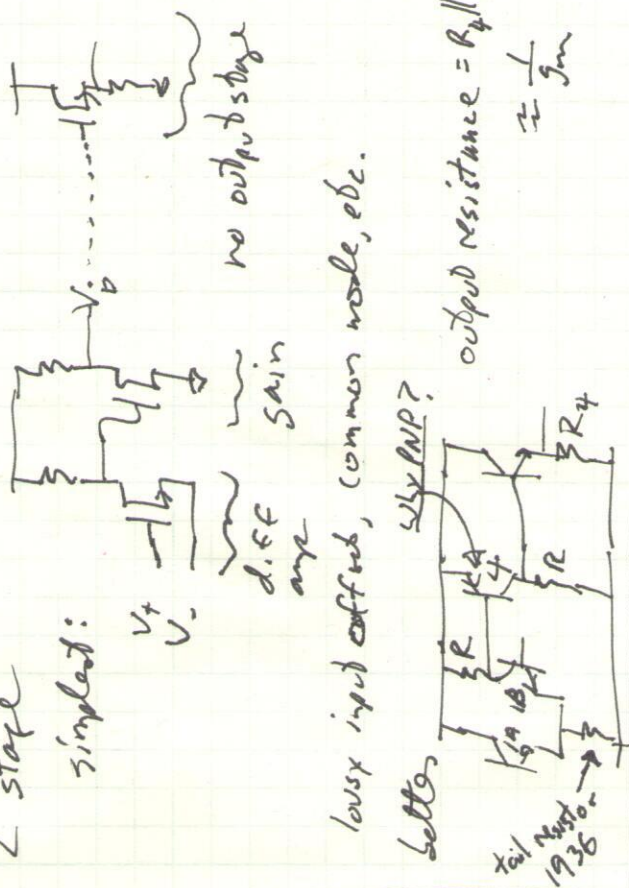 2 stage
simplest:
V+
V-
Vo
diff
amp
gain
no output stage
lousy input offset, common mode, etc.
better
Why PNP?
R
1A 1B
4
R
R4
output resistance = R4 ||
≈ 1/gm
tail resistor
1936